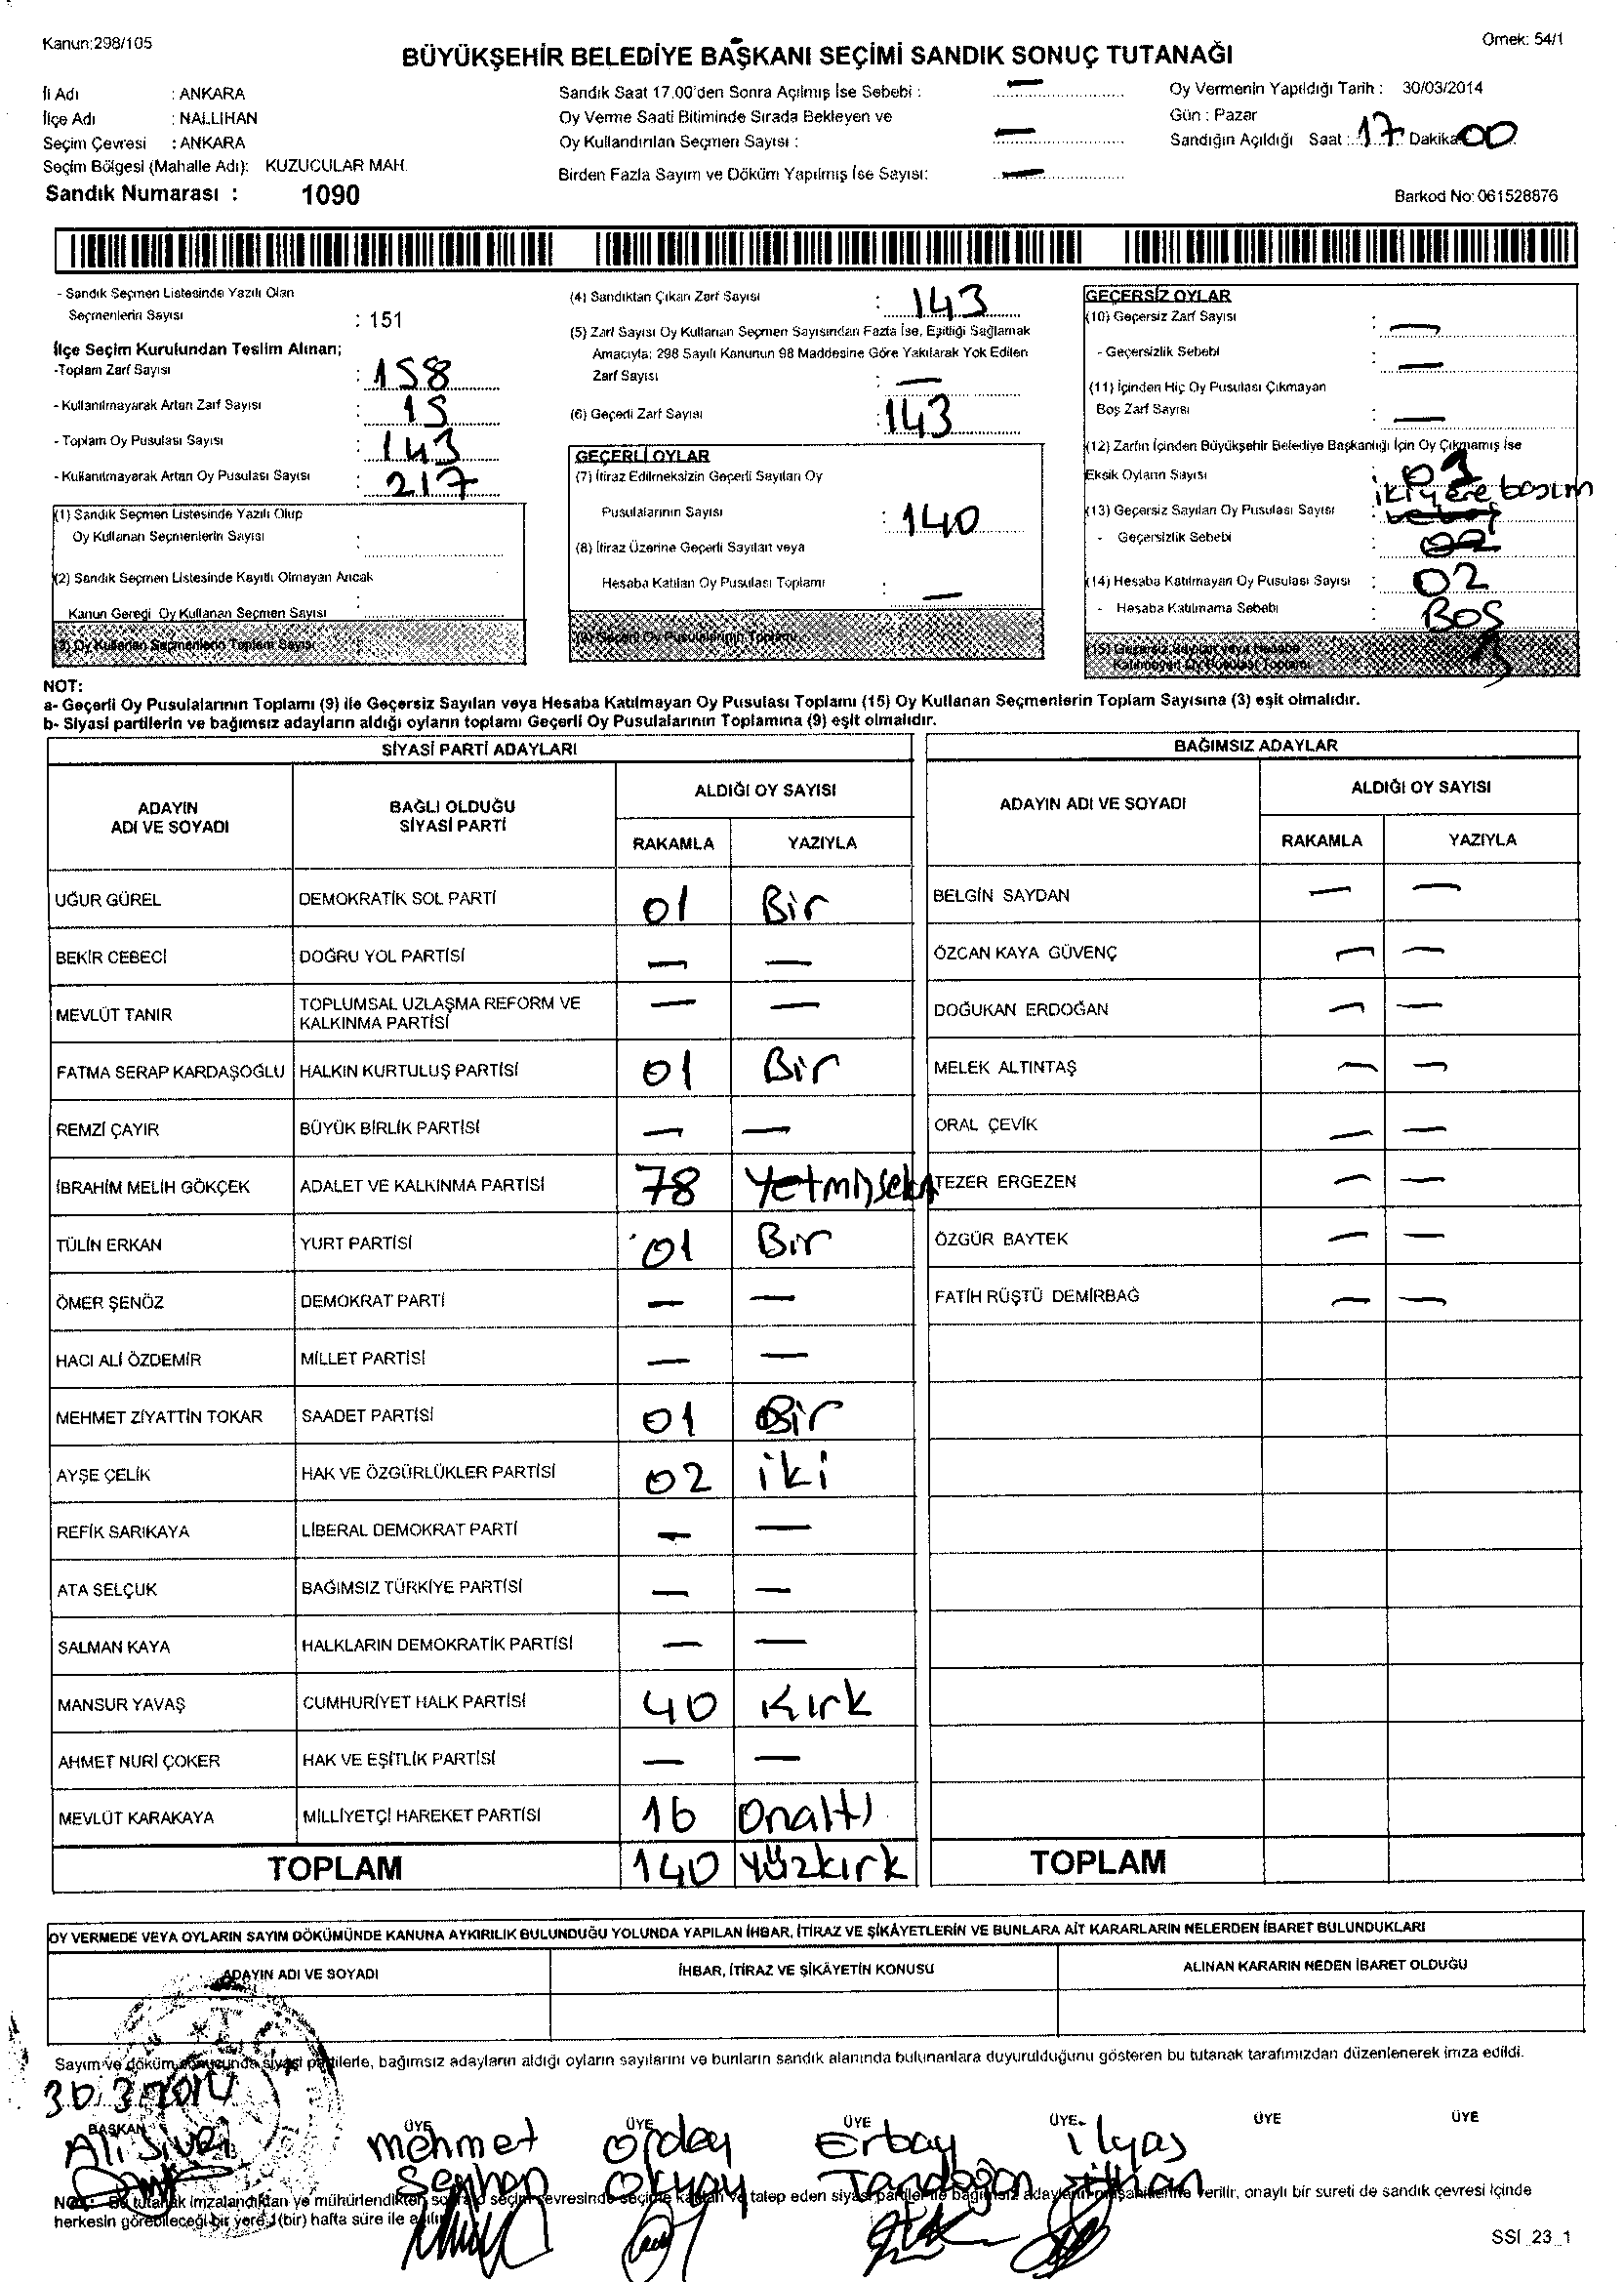 Kanun:298/105
Örnek: 54/1
BÜYÜKŞEHİR BELEDİYE BAŞKANI SEÇİMİ SANDIK SONUÇ TUTANAĞI
İl Adı : ANKARA
İlçe Adı : NALLIHAN
Seçim Çevresi : ANKARA
Seçim Bölgesi (Mahalle Adı): KUZUCULAR MAH.
Sandık Numarası : 1090
Sandık Saat 17.00'den Sonra Açılmış İse Sebebi : —
Oy Verme Saati Bitiminde Sırada Bekleyen ve
Oy Kullandırılan Seçmen Sayısı : —
Birden Fazla Sayım ve Döküm Yapılmış İse Sayısı: —
Oy Vermenin Yapıldığı Tarih : 30/03/2014
Gün : Pazar
Sandığın Açıldığı Saat : 17 Dakika 00
Barkod No: 061528876
- Sandık Seçmen Listesinde Yazılı Olan
Seçmenlerin Sayısı : 151
İlçe Seçim Kurulundan Teslim Alınan;
-Toplam Zarf Sayısı : 158
- Kullanılmayarak Artan Zarf Sayısı : 15
- Toplam Oy Pusulası Sayısı : 143
- Kullanılmayarak Artan Oy Pusulası Sayısı : 217
(1) Sandık Seçmen Listesinde Yazılı Olup
Oy Kullanan Seçmenlerin Sayısı :
(2) Sandık Seçmen Listesinde Kayıtlı Olmayan Ancak
Kanun Gereği Oy Kullanan Seçmen Sayısı :
(3) Oy Kullanan Seçmenlerin Toplam Sayısı
(4) Sandıktan Çıkan Zarf Sayısı : 143
(5) Zarf Sayısı Oy Kullanan Seçmen Sayısından Fazla İse, Eşitliği Sağlamak
Amacıyla; 298 Sayılı Kanunun 98 Maddesine Göre Yakılarak Yok Edilen
Zarf Sayısı : —
(6) Geçerli Zarf Sayısı : 143
GEÇERLİ OYLAR
(7) İtiraz Edilmeksizin Geçerli Sayılan Oy
Pusulalarının Sayısı : 140
(8) İtiraz Üzerine Geçerli Sayılan veya
Hesaba Katılan Oy Pusulası Toplamı : —
(9) Geçerli Oy Pusulalarının Toplamı
GEÇERSİZ OYLAR
(10) Geçersiz Zarf Sayısı : —
- Geçersizlik Sebebi : —
(11) İçinden Hiç Oy Pusulası Çıkmayan
Boş Zarf Sayısı : —
(12) Zarfın İçinden Büyükşehir Belediye Başkanlığı İçin Oy Çıkmamış İse
Eksik Oyların Sayısı :
(13) Geçersiz Sayılan Oy Pusulası Sayısı : iki yere basım
- Geçersizlik Sebebi :
(14) Hesaba Katılmayan Oy Pusulası Sayısı : 02
- Hesaba Katılmama Sebebi : BOŞ
(15) Geçersiz Sayılan veya Hesaba
Katılmayan Oy Pusulası Toplamı 3
NOT:
a- Geçerli Oy Pusulalarının Toplamı (9) ile Geçersiz Sayılan veya Hesaba Katılmayan Oy Pusulası Toplamı (15) Oy Kullanan Seçmenlerin Toplam Sayısına (3) eşit olmalıdır.
b- Siyasi partilerin ve bağımsız adayların aldığı oyların toplamı Geçerli Oy Pusulalarının Toplamına (9) eşit olmalıdır.
SİYASİ PARTİ ADAYLARI
ADAYIN ADI VE SOYADI
BAĞLI OLDUĞU SİYASİ PARTİ
ALDIĞI OY SAYISI
RAKAMLA YAZIYLA
UĞUR GÜREL DEMOKRATİK SOL PARTİ 01 Bir
BEKİR CEBECİ DOĞRU YOL PARTİSİ — —
MEVLÜT TANIR TOPLUMSAL UZLAŞMA REFORM VE KALKINMA PARTİSİ — —
FATMA SERAP KARDAŞOĞLU HALKIN KURTULUŞ PARTİSİ 01 Bir
REMZİ ÇAYIR BÜYÜK BİRLİK PARTİSİ — —
İBRAHİM MELİH GÖKÇEK ADALET VE KALKINMA PARTİSİ 78 Yetmişseki
TÜLİN ERKAN YURT PARTİSİ 01 Bir
ÖMER ŞENÖZ DEMOKRAT PARTİ — —
HACI ALİ ÖZDEMİR MİLLET PARTİSİ — —
MEHMET ZİYATTİN TOKAR SAADET PARTİSİ 01 Bir
AYŞE ÇELİK HAK VE ÖZGÜRLÜKLER PARTİSİ 02 iki
REFİK SARIKAYA LİBERAL DEMOKRAT PARTİ — —
ATA SELÇUK BAĞIMSIZ TÜRKİYE PARTİSİ — —
SALMAN KAYA HALKLARIN DEMOKRATİK PARTİSİ — —
MANSUR YAVAŞ CUMHURİYET HALK PARTİSİ 40 Kırk
AHMET NURİ ÇOKER HAK VE EŞİTLİK PARTİSİ — —
MEVLÜT KARAKAYA MİLLİYETÇİ HAREKET PARTİSİ 16 Onaltı
TOPLAM 140 Yüzkırk
BAĞIMSIZ ADAYLAR
ADAYIN ADI VE SOYADI
ALDIĞI OY SAYISI
RAKAMLA YAZIYLA
BELGİN SAYDAN — —
ÖZCAN KAYA GÜVENÇ — —
DOĞUKAN ERDOĞAN — —
MELEK ALTINTAŞ — —
ORAL ÇEVİK — —
TEZER ERGEZEN — —
ÖZGÜR BAYTEK — —
FATİH RÜŞTÜ DEMİRBAĞ — —
TOPLAM
OY VERMEDE VEYA OYLARIN SAYIM DÖKÜMÜNDE KANUNA AYKIRILIK BULUNDUĞU YOLUNDA YAPILAN İHBAR, İTİRAZ VE ŞİKÂYETLERİN VE BUNLARA AİT KARARLARIN NELERDEN İBARET BULUNDUKLARI
ADAYIN ADI VE SOYADI
İHBAR, İTİRAZ VE ŞİKÂYETİN KONUSU
ALINAN KARARIN NEDEN İBARET OLDUĞU
Sayım ve döküm sonucunda siyasi partilerle, bağımsız adayların aldığı oyların sayılarını ve bunların sandık alanında bulunanlara duyurulduğunu gösteren bu tutanak tarafımızdan düzenlenerek imza edildi.
30.3.2014
BAŞKAN ÜYE ÜYE ÜYE ÜYE ÜYE ÜYE
Ali Sivri Mehmet Orday Erbay ilyas
Seyhan Okyay Tandoğan
NOT: Bu tutanak imzalandıktan ve mühürlendikten sonra o seçim çevresinde seçime katılan ve talep eden siyasi partiler ile bağımsız adayların müşahitlerine verilir, onaylı bir sureti de sandık çevresi içinde
herkesin görebileceği bir yere 1(bir) hafta süre ile asılır
SSİ_23_1